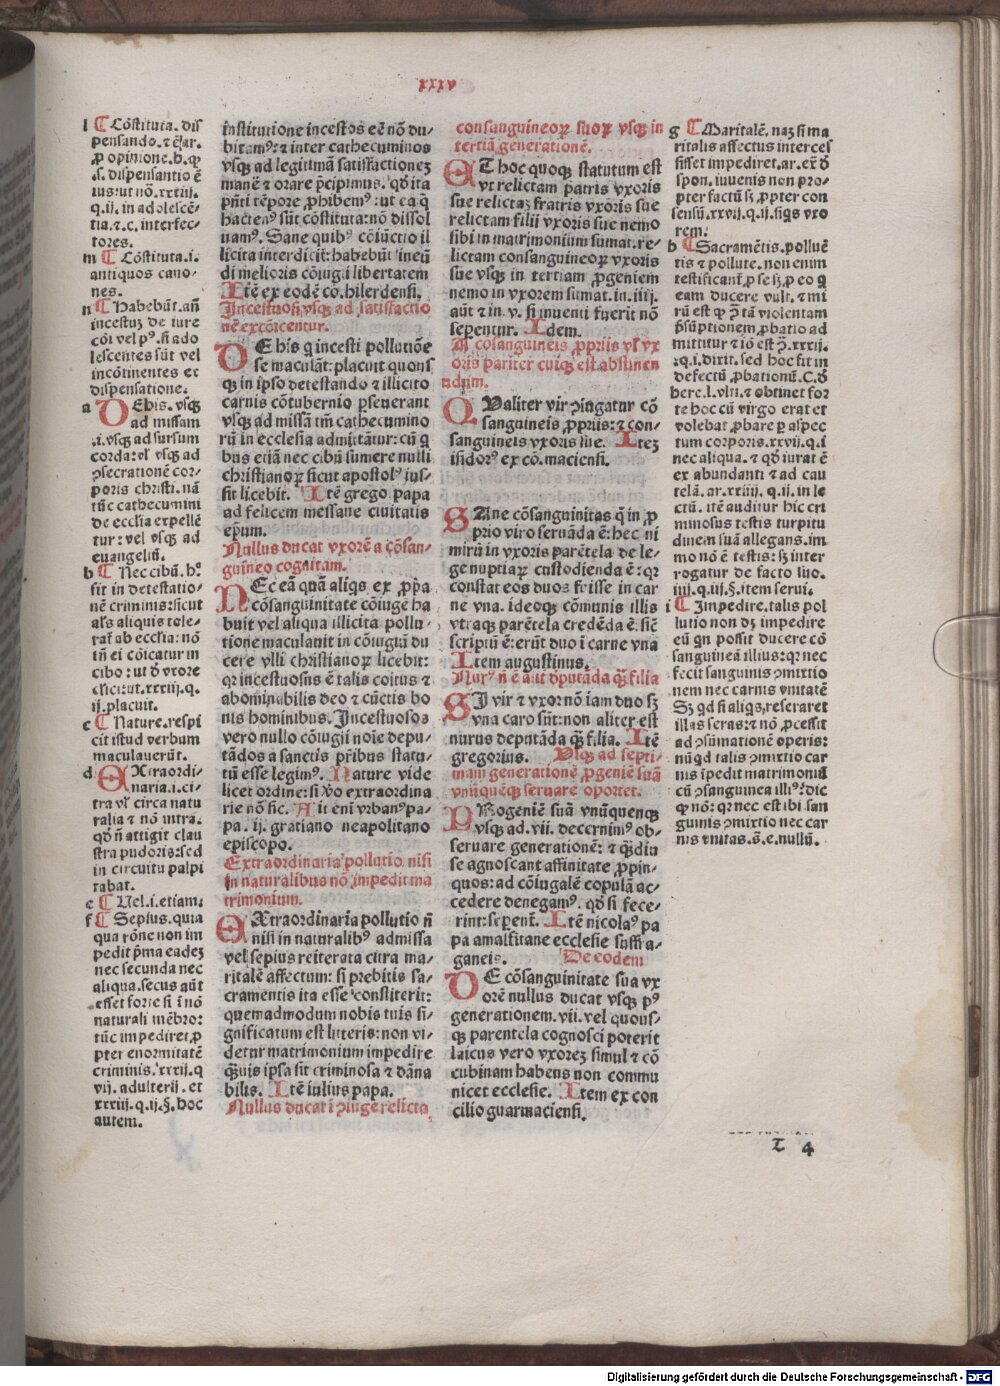 xxxv
l ¶ Cōstituta. dis
pensando. ⁊ c̄ꝯar.
ꝓ opinione. b. ꝙ
.s. dispensantio ē
ius: ut nō. xxiij.
q. ij. in adolescē-
tia. ⁊. c. interfec-
tores.
m ¶ Cōstituta. i.
antiquos cano-
nes.
n ¶ Habebūt. añ
incestuz de iure
cōi vel pꝰ. si ado
lescentes sūt vel
incōtinentes ex
dispensatione.
a DEhis. vsqꝫ
ad missam
.i. vsqꝫ ad sursum
corda: vl̓ vsqꝫ ad
ꝯsecrationē cor-
poris christi. nā
tūc cathecumini
de ecclīa expellē
tur: vel vsqꝫ ad
euangeliū.
b ¶ Nec cibū. hᵒ
fit in detestatio-
nē criminis: sicut
al̓s aliquis tole-
rat̄ ab ecclīa: nō
tn̄ ei cōicatur in
cibo: ut ꝺ vxore
dicitut. xxxiij. q.
ij. placuit.
c ¶ Nature. respi
cit istud verbum
maculauerūt.
d EXtraordi-
naria. i. ci-
tra vl̓ circa natu
ralia ⁊ nō intra.
qꝺ n̄ attigit clau
stra pudoris: sed
in circuitu palpi
tabat.
e ¶ Uel. i. etiam:
f ¶ Sepius. quia
qua rōne non im
pedit p̄ma eadeꝫ
nec secunda nec
aliqua. secus aūt
esset forte si ī nō
naturali mēbro:
tūc impediret ꝓ
pter enormitatē
criminis. xxxij. q
vij. adulterij. et
xxxiij. q. ij. §. hoc
autem.
institutione incestos eē nō du-
bitamꝰ: ⁊ inter cathecuminos
vsqꝫ ad legitimā satisfactioneꝫ
manē ⁊ orare p̄cipimus. qꝺ ita
pn̄ti tēpore ꝓhibemꝰ: ut ea q̄
hactenꝰ sūt cōstituta: nō dissol
uamꝰ. Sane quibꝰ cōiūctio il
licita interdicit̄: habebūt ineū
di melioris cōiugij libertatem
Itē ex eodē cō. hilerdensi.
Incestuosi vsqꝫ ad satisfactio
nē excōicentur.
DE his q incesti pollutiōe
se maculāt: placuit quous
qꝫ in ipso detestando ⁊ illicito
carnis cōtubernio ꝑseuerant
vsqꝫ ad missā tm̄ cathecumino
rū in ecclesia admittātur: cū q̄
bus etiā nec cibū sumere nulli
christianoꝝ sicut apostolꝰ ius-
sit licebit. Itē grego. papa
ad felicem messane ciuitatis
ep̄um.
Nullus ducat vxorē a cōsan-
guineo cognitam.
NEc eā quā aliqs ex ꝓp̄a
cōsanguinitate cōiugē ha
buit vel aliqua illicita pollu-
tione maculauit in cōiugiū du
cere vlli christianoꝝ licebit:
qꝛ incestuosus ē talis coitus ⁊
abominabilis deo ⁊ cūctis bo
nis hominibus. Incestuosos
vero nullo cōiugij noīe depu-
tādos a sanctis pr̄ibus statu-
tū esse legimꝰ. Nature vide
licet ordine: si v̊o extraordina
rie nō sic. Ait eni vrbanꝰ pa-
pa. ij. gratiano neapolitano
episcopo.
Extraordinaria pollutio nisi
in naturalibus nō impedit ma
trimonium.
EXtraordinaria pollutio n̄
nisi in naturalibꝰ admissa
vel sepius reiterata citra ma-
ritalē affectum: si prebitis sa-
cramentis ita esse constiterit:
quemadmodum nobis tuis si-
gnificatum est litteris: non vi-
detur matrimonium impedire
q̄uis ipsa sit criminosa ⁊ dāna
bilis. Itē iulius papa.
Nullus ducat ī ꝯiugē relictā
consanguineoꝝ suoꝝ vsqꝫ in
tertiā generationē.
ET hoc quoqꝫ statutum est
vt relictam patris vxoris
sue relictaꝫ fratris vxoris sue
relictam filii vxoris sue nemo
sibi in matrimonium sumat. re-
lictam consanguineoꝝ vxoris
sue vsqꝫ in tertiam ꝓgeniem
nemo in vxorem sumat. in. iiij.
aūt ⁊ in. v. si inuenti fuerit nō
sepentur. Idem.
A cōsanguineis ꝓpriis vl̓ vx
oris pariter cuiqꝫ est abstinen
dum.
QUaliter vir ꝯiūgatur cō
sanguineis ꝓpriis: ⁊ con-
sanguineis vxoris sue. Iteꝫ
isidorꝰ ex cō. maciensi.
SAne cōsanguinitas q̄ in ꝓ
prio viro seruāda ē: hec ni
mirū in vxoris parētela de le-
ge nuptiaꝝ custodienda ē: qꝛ
constat eos duos fuisse in car
ne vna. ideoqꝫ cōmunis illis
vtraqꝫ parētela credēda ē: sic̄
scriptū ē: erūt duo ī carne vna
Item augustinus.
Nurꝰ n̄ ē aūt deputāda q̄ꝫ filia
SI vir ⁊ vxor nō iam duo sꝫ
vna caro sūt: non aliter est
nurus deputāda q̄ꝫ filia. Itē
gregorius. Vsqꝫ ad septi-
mam generationē ꝓgeniē suā
vnūquēqꝫ seruare oportet.
PRogeniē suā vnūquenqꝫ
vsqꝫ ad. vii. decernimꝰ ob-
seruare generationē: ⁊ q̄ꝫdiu
se agnoscant affinitate ꝓpin-
quos: ad cōiugalē copulā ac-
cedere denegamꝰ. qꝺ si fece-
rint: separent̄. Itē nicolaꝰ pa
pa amalfitane ecclesie suffra-
ganeis. De eodem
DE cōsanguinitate sua vx
orē nullus ducat vsqꝫ pꝰ
generationem. vii. vel quous-
qꝫ parentela cognosci poterit
laicus vero vxoreꝫ simul ⁊ cō
cubinam habens non commu
nicet ecclesie. Item ex con
cilio guarmaciensi.
g ¶ Maritalē. naꝫ si ma
ritalis affectus interces
sisset impediret. ar. eꝝ ꝺ
spon. iuuenis non pro-
pter factū sꝫ ꝓpter con
sensū. xxvij. q. ij. siqs vxo
rem.
h ¶ Sacramētis. polluē
tis ⁊ pollute. non enim
testificant̄ ꝓ se sꝫ ꝓ eo q̄
eam ducere vult. ⁊ mi
rū est ꝙ ꝯ tā violentam
p̄sūptionem ꝓbatio ad
mittitur ⁊ iō est ꝯ. xxxij.
.q. i. dixit. sed hoc fit in
defectū ꝓbationū. C. ꝺ
here. l. viii. ⁊ obtinet for
te hoc cū virgo erat et
volebat ꝓbare ꝑ aspec
tum corporis. xxvij. q. i
nec aliqua. ⁊ qꝺ iurat ē
ex abundanti ⁊ ad cau
telā. ar. xxiiij. q. ij. in le
ctū. itē auditur hic cri
minosus testis turpitu
dinem suā allegans. im
mo nō ē testis: sꝫ inter
rogatur de facto suo.
iiij. q. iij. §. item serui.
i ¶ Impedire. talis pol
lutio non dꝫ impedire
eū qn possit ducere cō
sanguineā illius: qꝛ nec
fecit sanguinis ꝯmixtio
nem nec carnis vnitatē
Sꝫ qd si aliqs, reseraret
illas seras: ⁊ nō ꝓcessit
ad ꝯsūmationē operis:
nūqd talis ꝯmixtio car
nis īpedit matrimoniū
cū ꝯsanguinea illiꝰ: dic
ꝙ nō: qꝛ nec est ibi san
guinis ꝯmixtio nec car
nis vnitas. s̄. e. nullū.
T 4
Digitalisierung gefördert durch die Deutsche Forschungsgemeinschaft - DFG